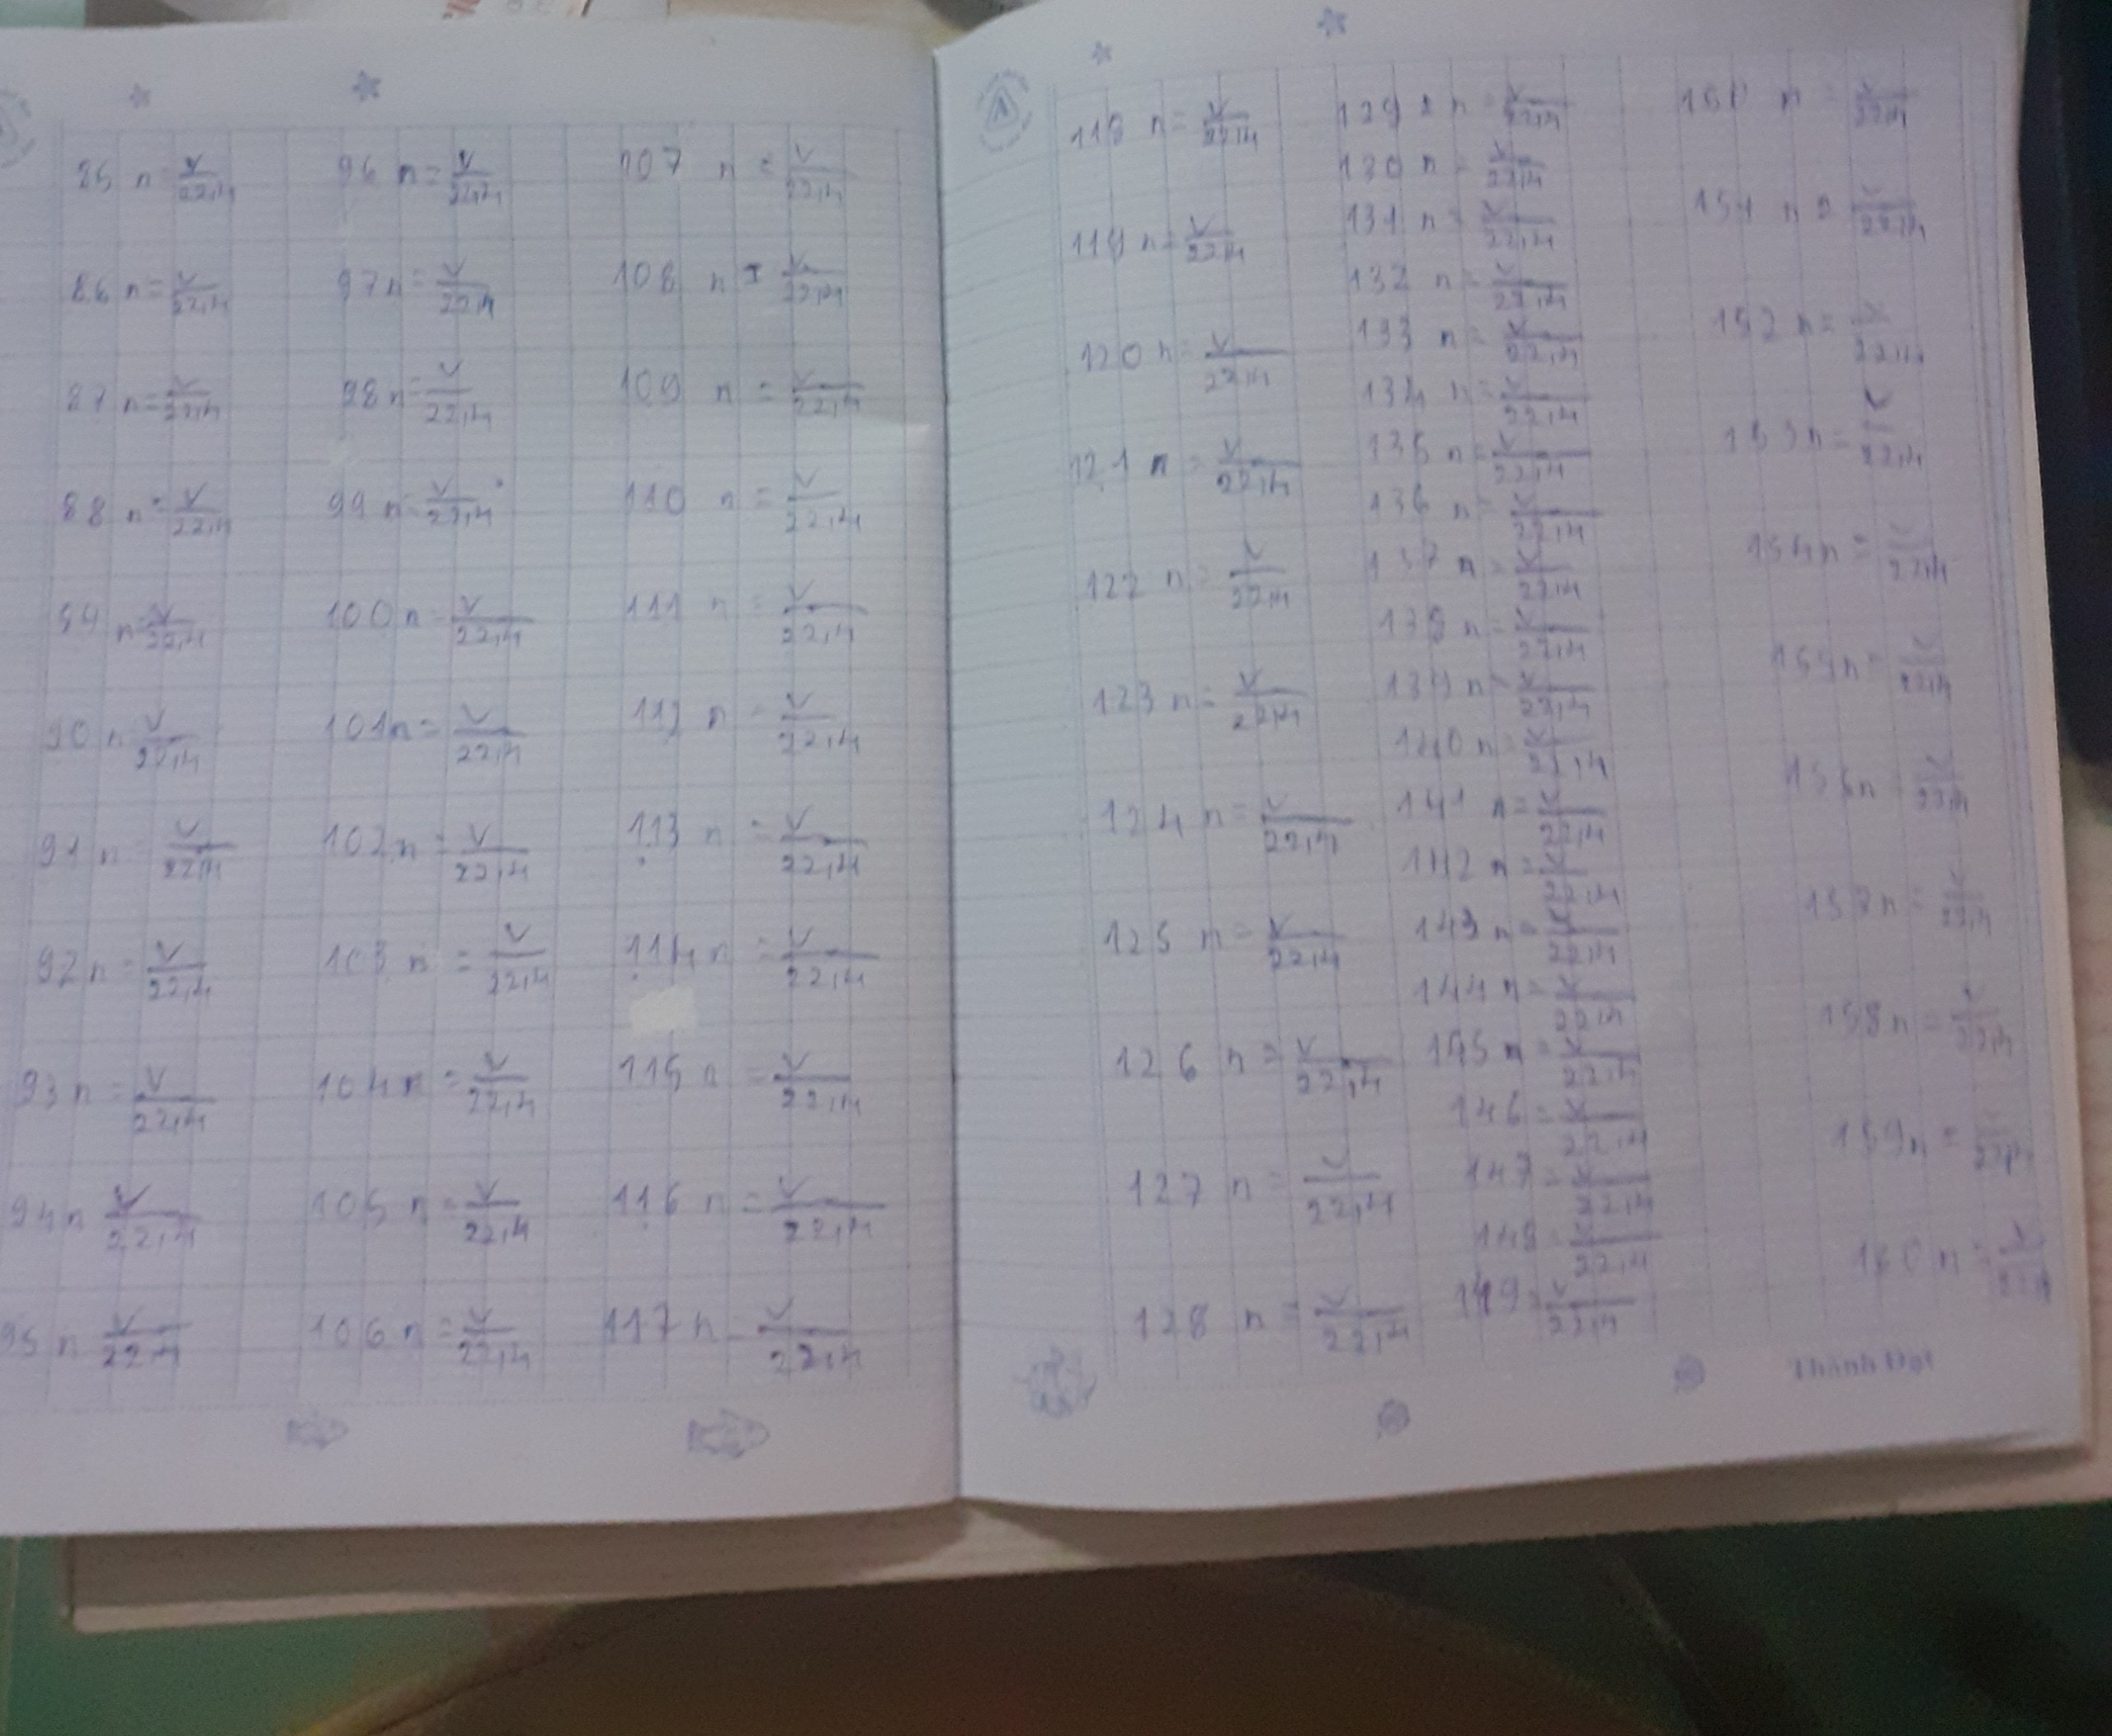 85 n = V/22,4
86 n = V/22,4
87 n = V/22,4
88 n = V/22,4
94 n = V/22,4
90 n V/22,4
91 n V/22,4
92 n = V/22,4
93 n = V/22,4
94 n V/22,4
95 n V/22,4
96 n = V/22,4
97 n = V/22,4
98 n = V/22,4
99 n = V/22,4
100 n = V/22,4
101 n = V/22,4
102 n = V/22,4
103 n = V/22,4
104 n = V/22,4
105 n = V/22,4
106 n = V/22,4
107 n = V/22,4
108 n = V/22,4
109 n = V/22,4
110 n = V/22,4
111 n = V/22,4
112 n = V/22,4
113 n = V/22,4
114 n = V/22,4
115 n = V/22,4
116 n = V/22,4
117 n V/22,4
118 n = V/22,4
119 n = V/22,4
120 n = V/22,4
121 n = V/22,4
122 n = V/22,4
123 n = V/22,4
124 n = V/22,4
125 n = V/22,4
126 n = V/22,4
127 n = V/22,4
128 n = V/22,4
129 n = V/22,4
130 n = V/22,4
131 n = V/22,4
132 n = V/22,4
133 n = V/22,4
134 n = V/22,4
135 n = V/22,4
136 n = V/22,4
137 n = V/22,4
138 n = V/22,4
139 n = V/22,4
140 n = V/22,4
141 n = V/22,4
142 n = V/22,4
143 n = V/22,4
144 n = V/22,4
145 n = V/22,4
146 = V/22,4
147 = V/22,4
148 = V/22,4
149 = V/22,4
150 n = V/22,4
151 n = V/22,4
152 n = V/22,4
153 n = V/22,4
154 n = V/22,4
155 n = V/22,4
156 n = V/22,4
157 n = V/22,4
158 n = V/22,4
159 n = V/22,4
160 n = V/22,4
Thành Đạt